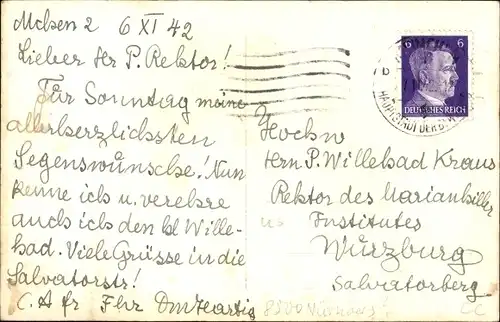 Mchen 2 6 XI 42
Lieber Hr P. Rektor!
Für Sonntag meine
allerherzlichsten
Segenswünsche! Nun
kenne ich u. verehre
auch ich den hl Wille-
had. Viele Grüsse in die
Salvatorstr!
6 6
DEUTSCHES REICH
HAUPTSTADT DER
Hochw
Hern P. Willehad Kraus
Rektor des Marianhiller
Institutes
Würzburg
Salvatorberg